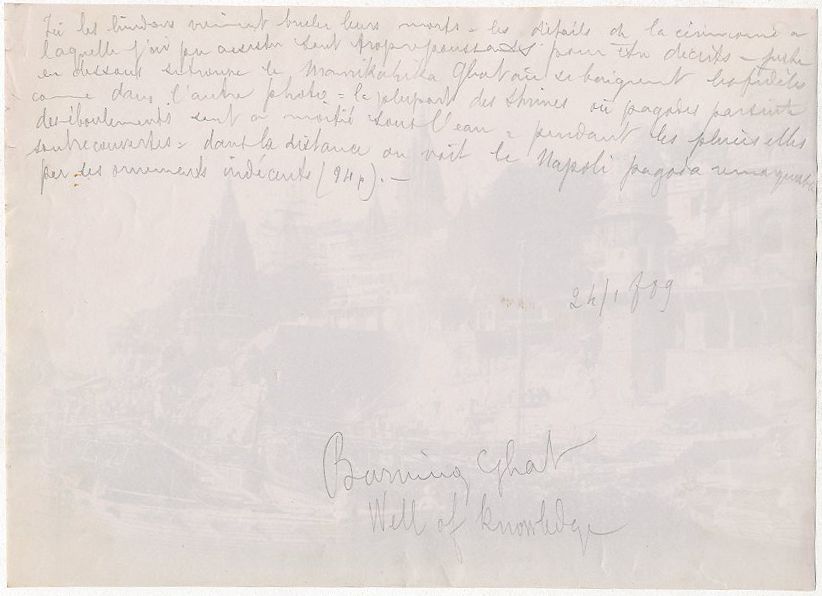 Ici les hindous viennent bruler leurs morts = les détails de la cérémonie a
laquelle j'ai pu assister sont trop repoussants pour être decrits = juste
en dessous se trouve le Manikahika Ghat où se baignent les fidèles
comme dans l'autre photo = la plupart des shrines ou pagodes par suite
des éboulements sont a moitié sous l'eau = pendant les pluies elles
sont recouvertes = dans la distance on voit le Napoli pagoda remarquable
par ses ornements indécents (94p). —
Burning Ghat
Well of Knowledge